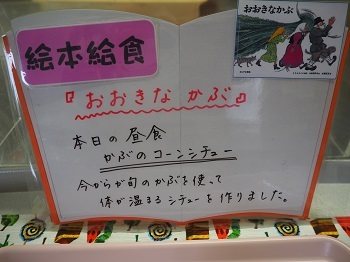 絵本給食
おおきなかぶ
『おおきな かぶ』
本日の 昼食
かぶのコーンシチュー
今からが旬のかぶを使って
体が温まる シチューを作りました。